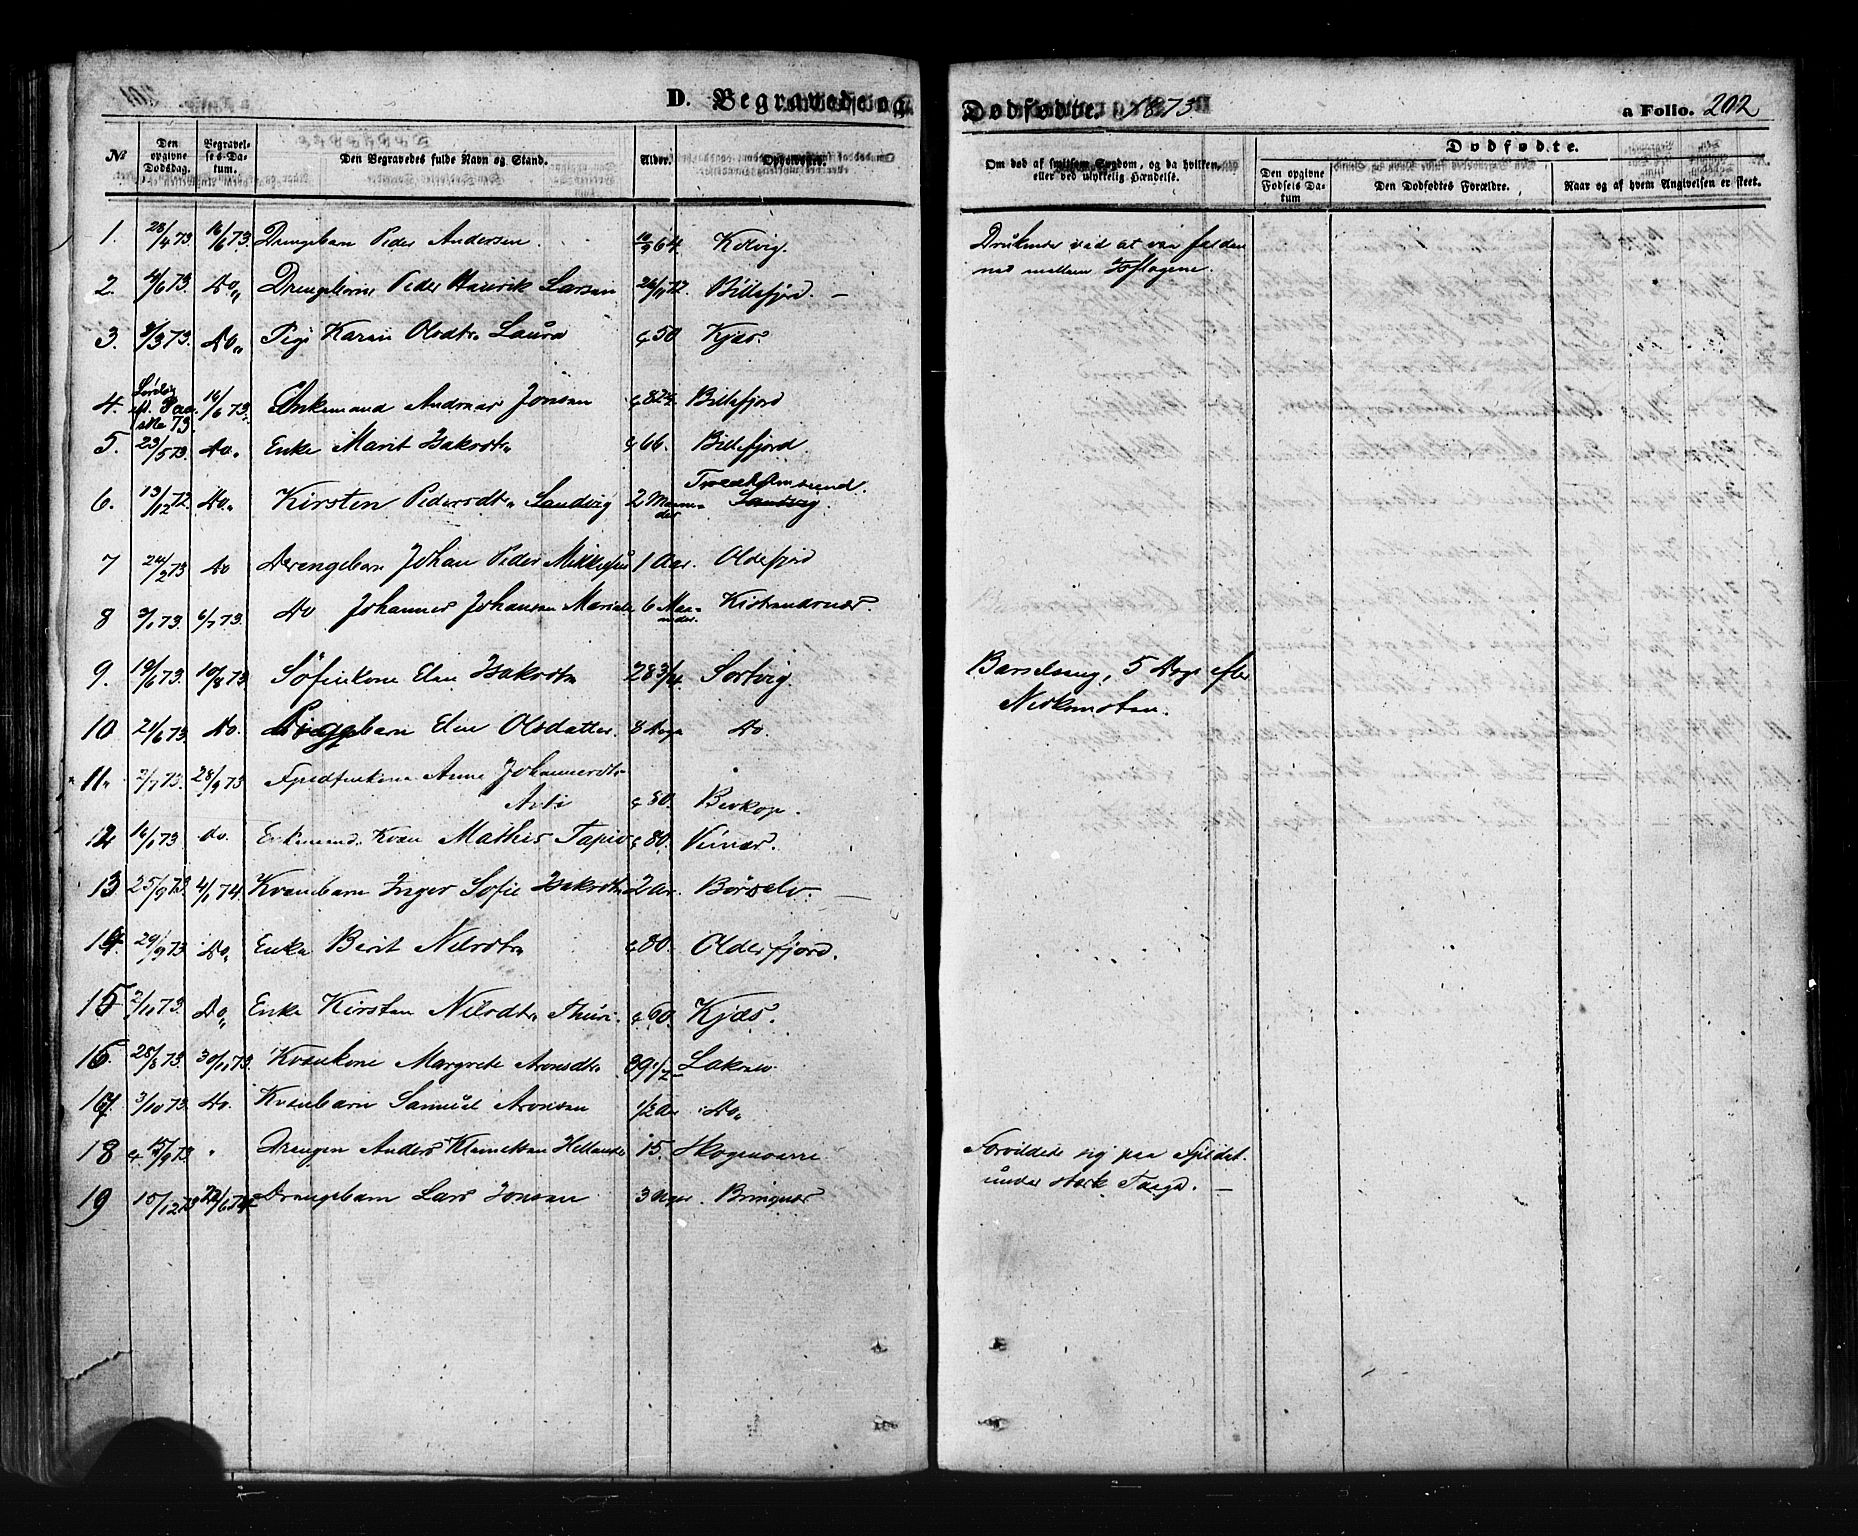 D. Begravede og Dødfødte. 1873. a Folio. 202
№ Den opgivne Dødsdag. Begravelses-Datum. Den Begravedes fulde Navn og Stand. Alder. Opholdssted. Om død af smitsom Sygdom, og da hvilken, eller ved ulykkelig Hændelse. Dødfødte.
Den opgivne Fødsels Datum Den Dødfødtes Forældre. Naar og af hvem Angivelsen er skeet.
1. 28/4 73. 16/6 73. Drengebarn Peder Andersen. 10/9 64. Kolvig. Druknede ved at være falden
ned mellem
2. 4/6 73. Do. Drengebarn Peder Henrik Larsen 26/11 72. Billefjord. —
3. 3/3 73. Do. Pige Karen Olsdtr. Laura c 50 Kjæs.
4. Lørdag Paaske 73. 16/6 73. Enkemand Andreas Jonsen c 82 Billefjord
5. 23/5 73. Do. Enke Marit Isaksdtr c 66. Billefjord.
6. 13/12 72. Do. Kirsten Pedersdtr. Sandvig 2 Maaneder Sandvig
7 24/2 73 Do Drengebarn Johan Peder Mikkelsen 1 Aar. Oldefjord
8 3/1 73. 6/7 73. Do Johannes Johansen 6 Maaneder. Kistrandsnæs.
9. 19/6 73. 10/8 73. Søfinkone Elen Isaksdtr 28 3/4. Sortvig. Barselseng, 5 Dage efter
Nedkomsten.
10 24/6 73. Do. Piggebarn Elen Olsdatter 8 Dage Do.
11. 2/7 73. 28/9 73 Fjeldfinkone Anne Johannesdtr
c 80.
12 16/1 73. do. Enkemand Kvæn Mathis Tapio c 80. Veinæs.
13 25/9 73. 4/1 74. Kvænbarn Inger Sofie Isaksdtr 2 Ar. Børselv. —
14. 29/9 73. Do. Enke Berit Nilsdtr c 80. Oldefjord.
15 2/11 73. Do. Enke Kirsten Nilsdtr Thuri. c 60. Kjæs.
16. 28/8 73. 30/11 73. Kvænkone Margrete Aronsdtr 39 1/2 Lakselv
17. 3/10 73. Do. Kvænbarn Samuel Aronsen 1/2 Ar Do.
18 c 15/9 73. " Drengen Anders Klemetsen Hellander 15. Skogenvarre Forvildede sig paa Fjeldet
under stærk Taage. —
19 15/12 73 22/6 74 Drengebarn Lars Jonsen 3 Bringnæs